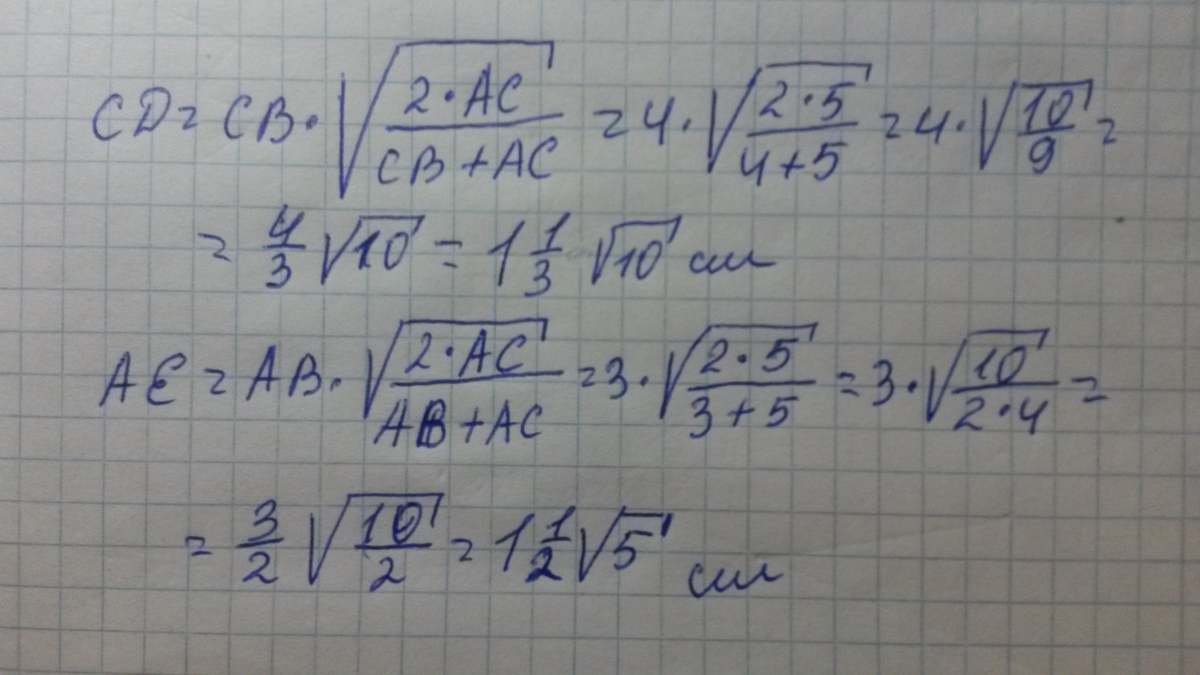 CD = CB · √(2·AC / CB + AC) = 4 · √(2·5 / 4+5) = 4 · √(10/9) =
= 4/3 √10 = 1 1/3 √10 см
AE = AB · √(2·AC / AB + AC) = 3 · √(2·5 / 3+5) = 3 · √(10 / 2·4) =
= 3/2 √(10/2) = 1 1/2 √5 см